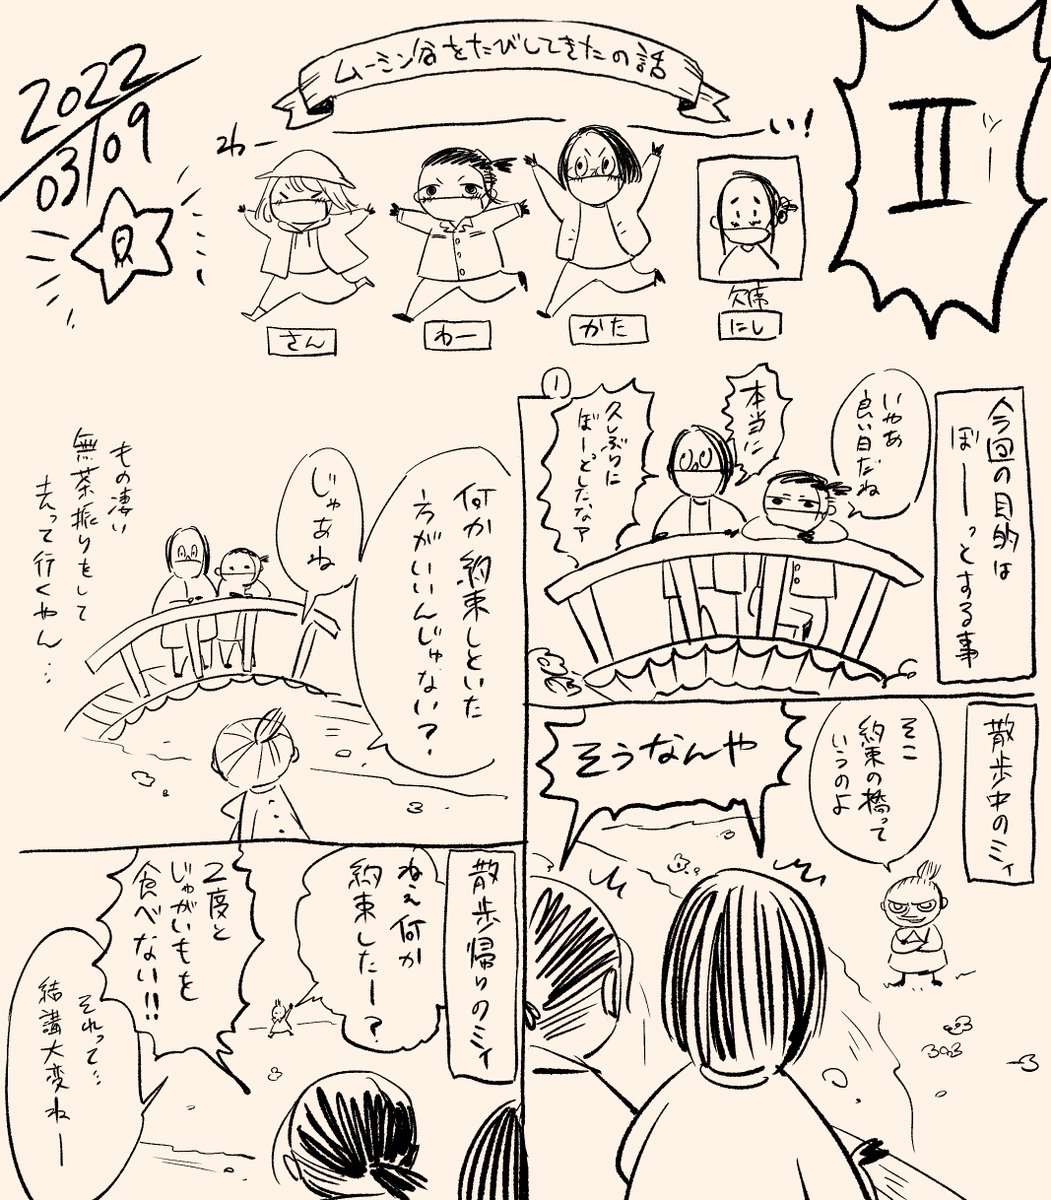 ムーミン谷をたびしてきたの話
2022
03/09
Ⅱ
ッ
わー
い!
さん
わー
かた
欠席
にし
今回の目的は
ぼーーっとする事
①
いやあ
良い日だね
本当に
久しぶりに
ぼーっとしたなァ
散歩中のミィ
そこ
約束の橋って
いうのよ
そうなんや
何か約束しといた
方がいいんじゃない?
じゃあね
もの凄い
無茶振りをして
去って行くやん…
散歩帰りのミィ
ねえ何か
約束したー?
2度と
じゃがいもを
食べない!!
それって…
結講大変ねー